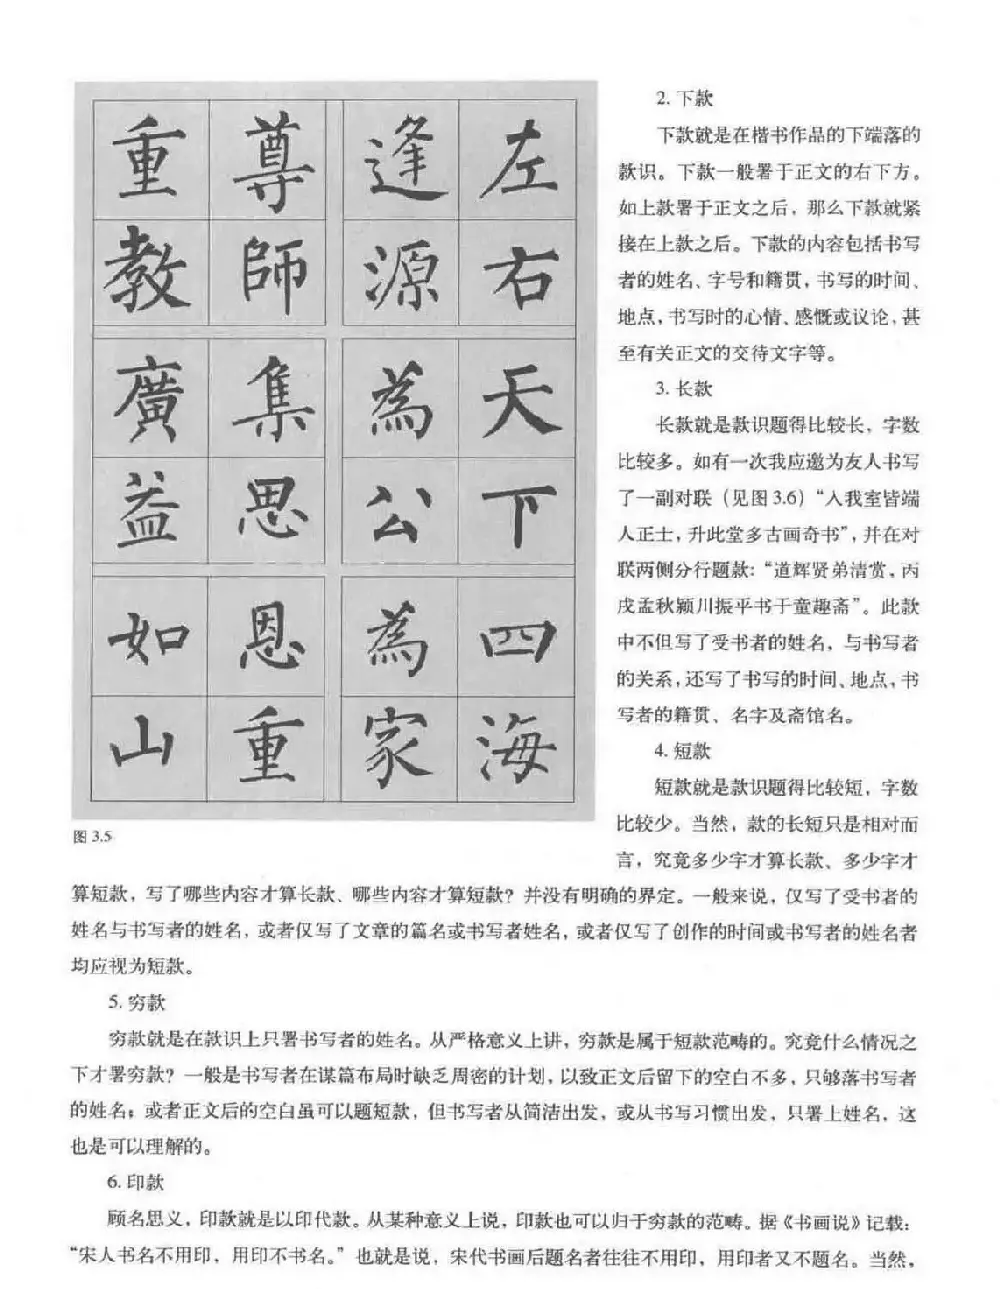 重尊逢左
教師源右
廣集為天
益思公下
如恩為四
山重家海
图 3.5
2. 下款
下款就是在楷书作品的下端落的
款识。下款一般署于正文的右下方。
如上款署于正文之后，那么下款就紧
接在上款之后。下款的内容包括书写
者的姓名、字号和籍贯，书写的时间、
地点，书写时的心情、感慨或议论，甚
至有关正文的交待文字等。
3. 长款
长款就是款识题得比较长，字数
比较多。如有一次我应邀为友人书写
了一副对联（见图 3.6）“入我室皆端
人正士，升此堂多古画奇书”，并在对
联两侧分行题款：“道辉贤弟清赏，丙
戌孟秋颖川振平书于童趣斋”。此款
中不但写了受书者的姓名，与书写者
的关系，还写了书写的时间、地点，书
写者的籍贯、名字及斋馆名。
4. 短款
短款就是款识题得比较短，字数
比较少。当然，款的长短只是相对而
言，究竟多少字才算长款、多少字才
算短款，写了哪些内容才算长款、哪些内容才算短款？并没有明确的界定。一般来说，仅写了受书者的
姓名与书写者的姓名，或者仅写了文章的篇名或书写者姓名，或者仅写了创作的时间或书写者的姓名者
均应视为短款。
5. 穷款
穷款就是在款识上只署书写者的姓名。从严格意义上讲，穷款是属于短款范畴的。究竟什么情况之
下才署穷款？一般是书写者在谋篇布局时缺乏周密的计划，以致正文后留下的空白不多，只够落书写者
的姓名；或者正文后的空白虽可以题短款，但书写者从简洁出发，或从书写习惯出发，只署上姓名，这
也是可以理解的。
6. 印款
顾名思义，印款就是以印代款。从某种意义上说，印款也可以归于穷款的范畴。据《书画说》记载：
“宋人书名不用印，用印不书名。”也就是说，宋代书画后题名者往往不用印，用印者又不题名。当然，